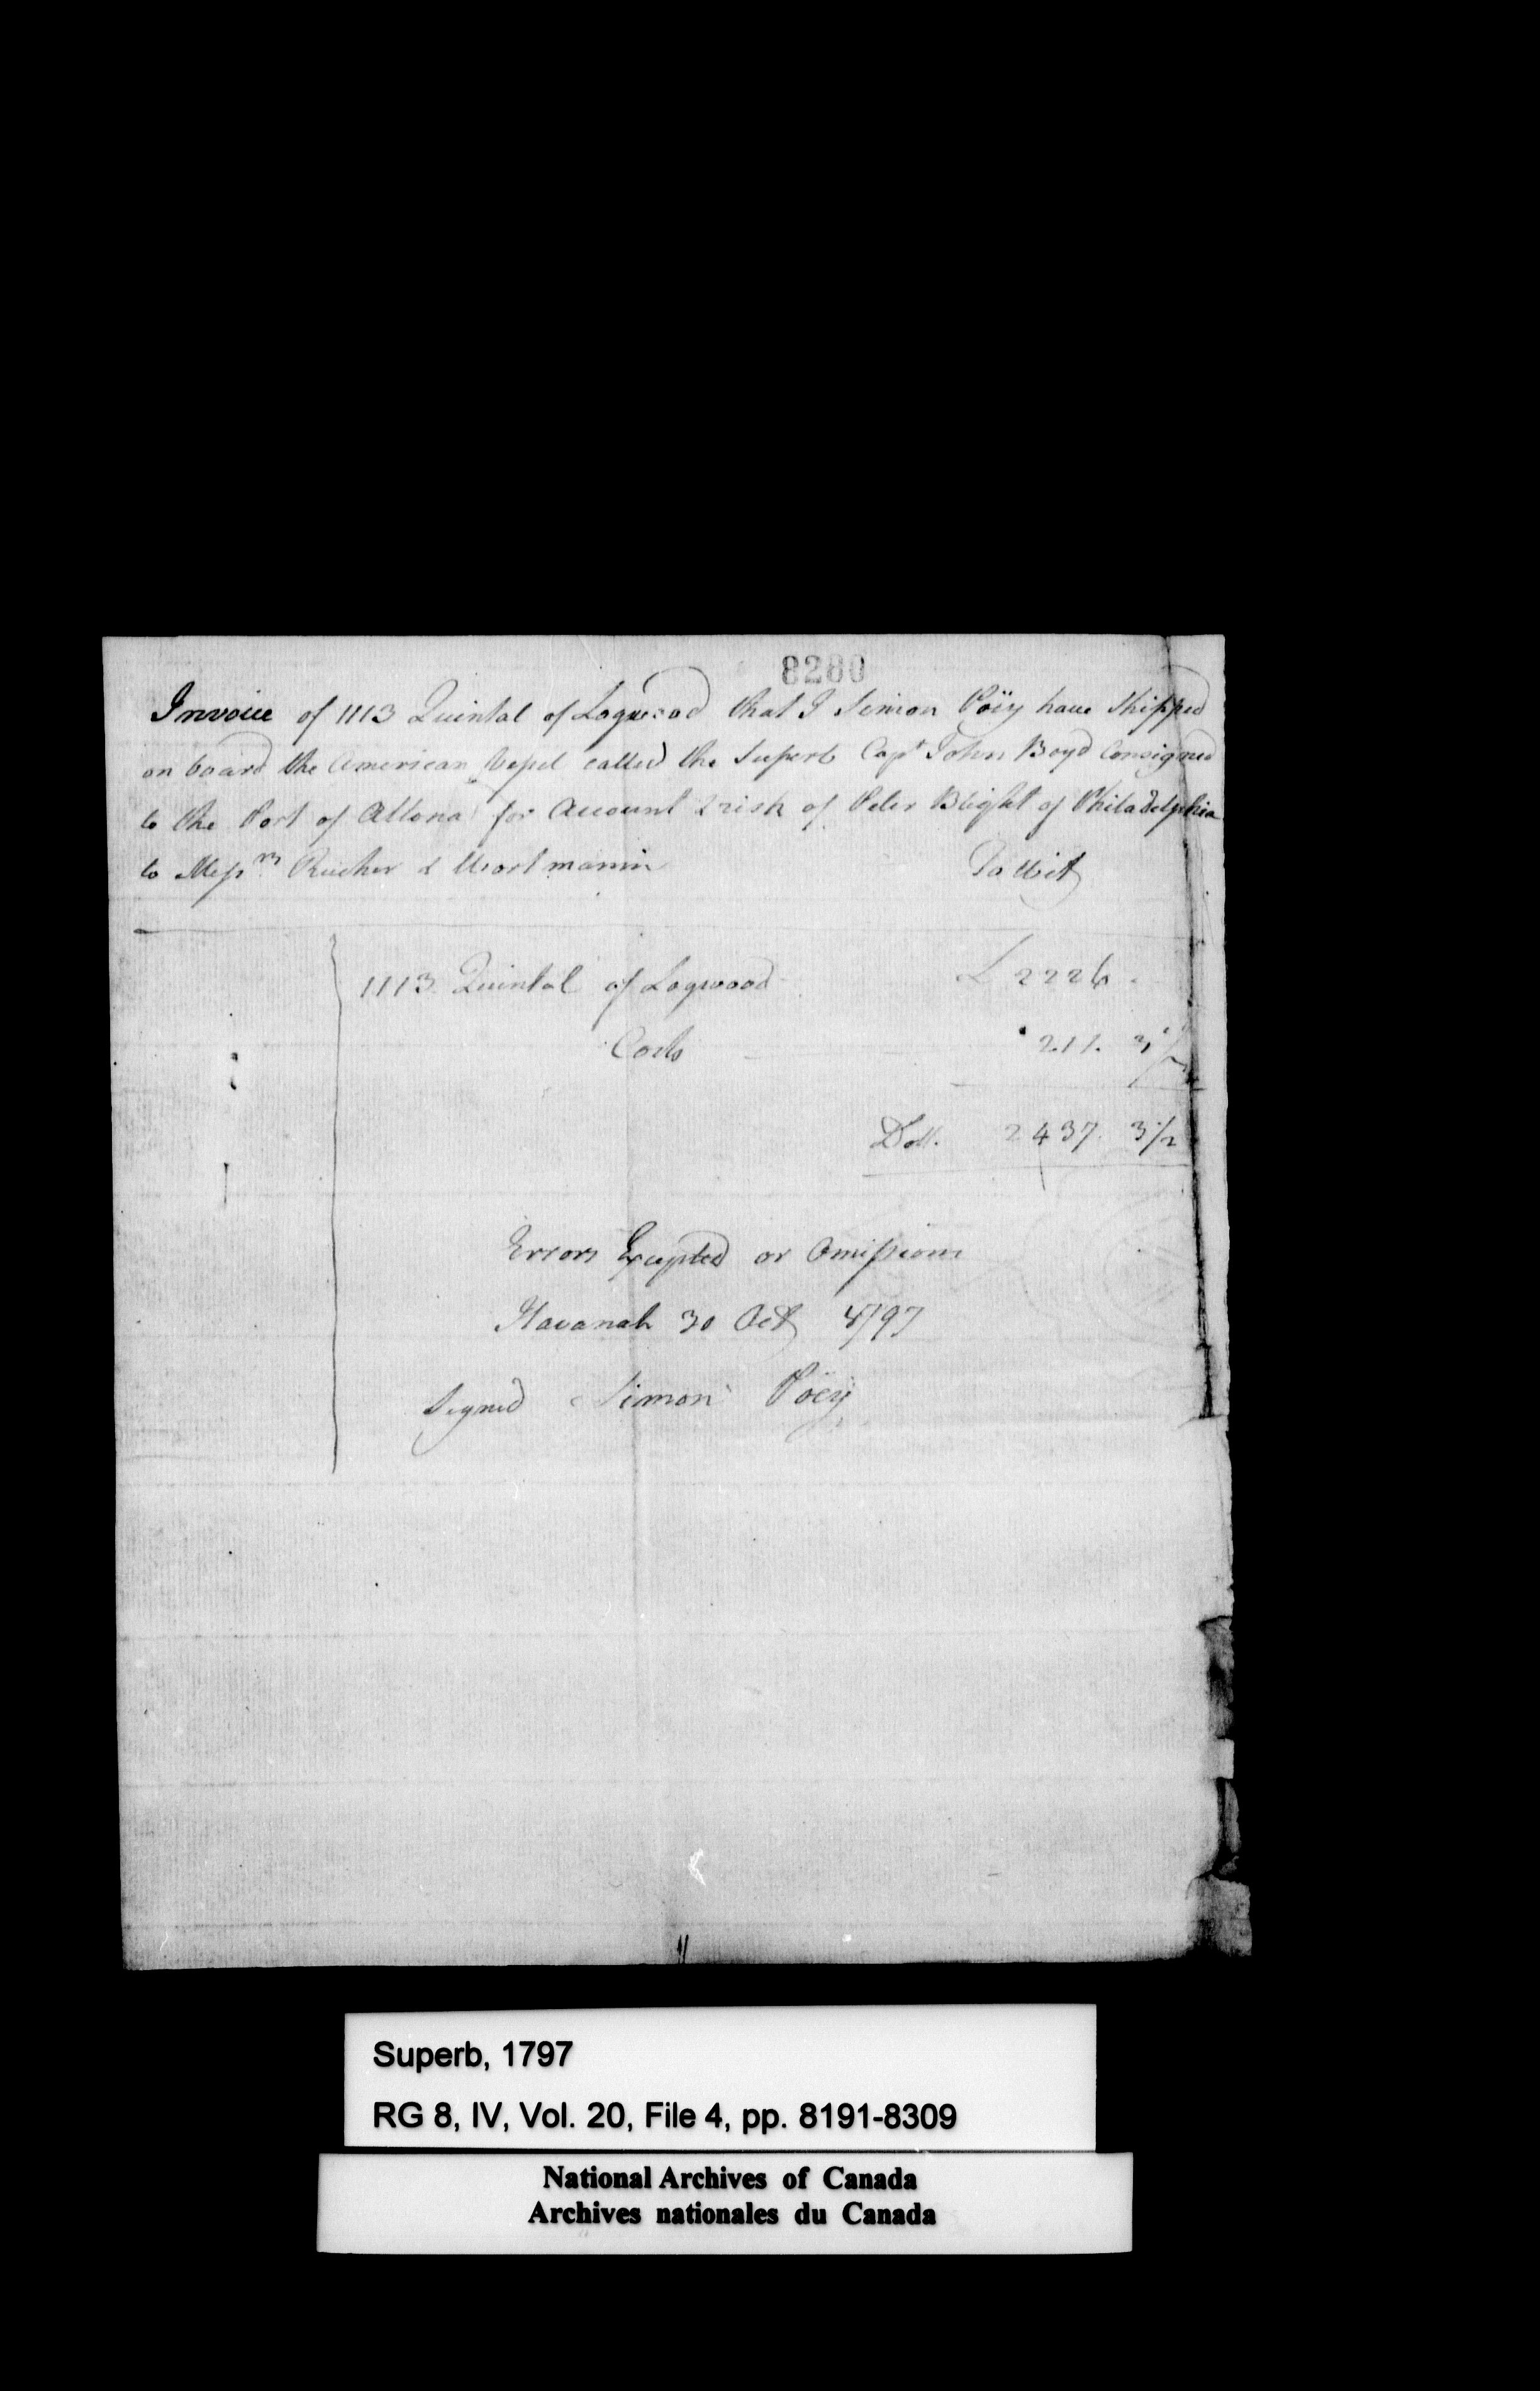 8280
Invoice of 1113 Quintal of Logwood that I Simon Pöey have Shipped
on board the American Vessel called the Superb Capt John Boyd Consigned
to the Port of Altona for Account & risk of Peter Blight of Philadelphia
to Messrs Rucker & Wortmann To Wit
1113 Quintal of Logwood 2226
Costs 211. 3 1/2
Doll. 2437. 3 1/2
Errors Excepted or Omissions
Havanah 30 Oct 1797
Signed Simon Pöey
Superb, 1797
RG 8, IV, Vol. 20, File 4, pp. 8191-8309
National Archives of Canada
Archives nationales du Canada